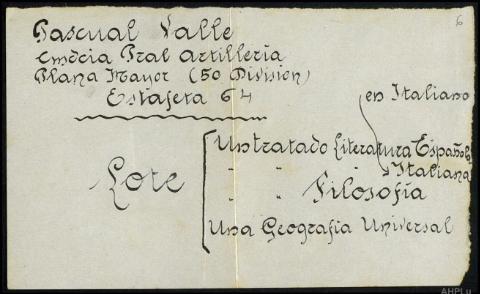 6
Pascual Valle
Cmdcia Pral Artillería
Plana Mayor (50 División)
Estafeta 64
en Italiano
Lote
Un tratado Literatura Española
Italiana
" " Filosofía
Una Geografía Universal
AHPLu